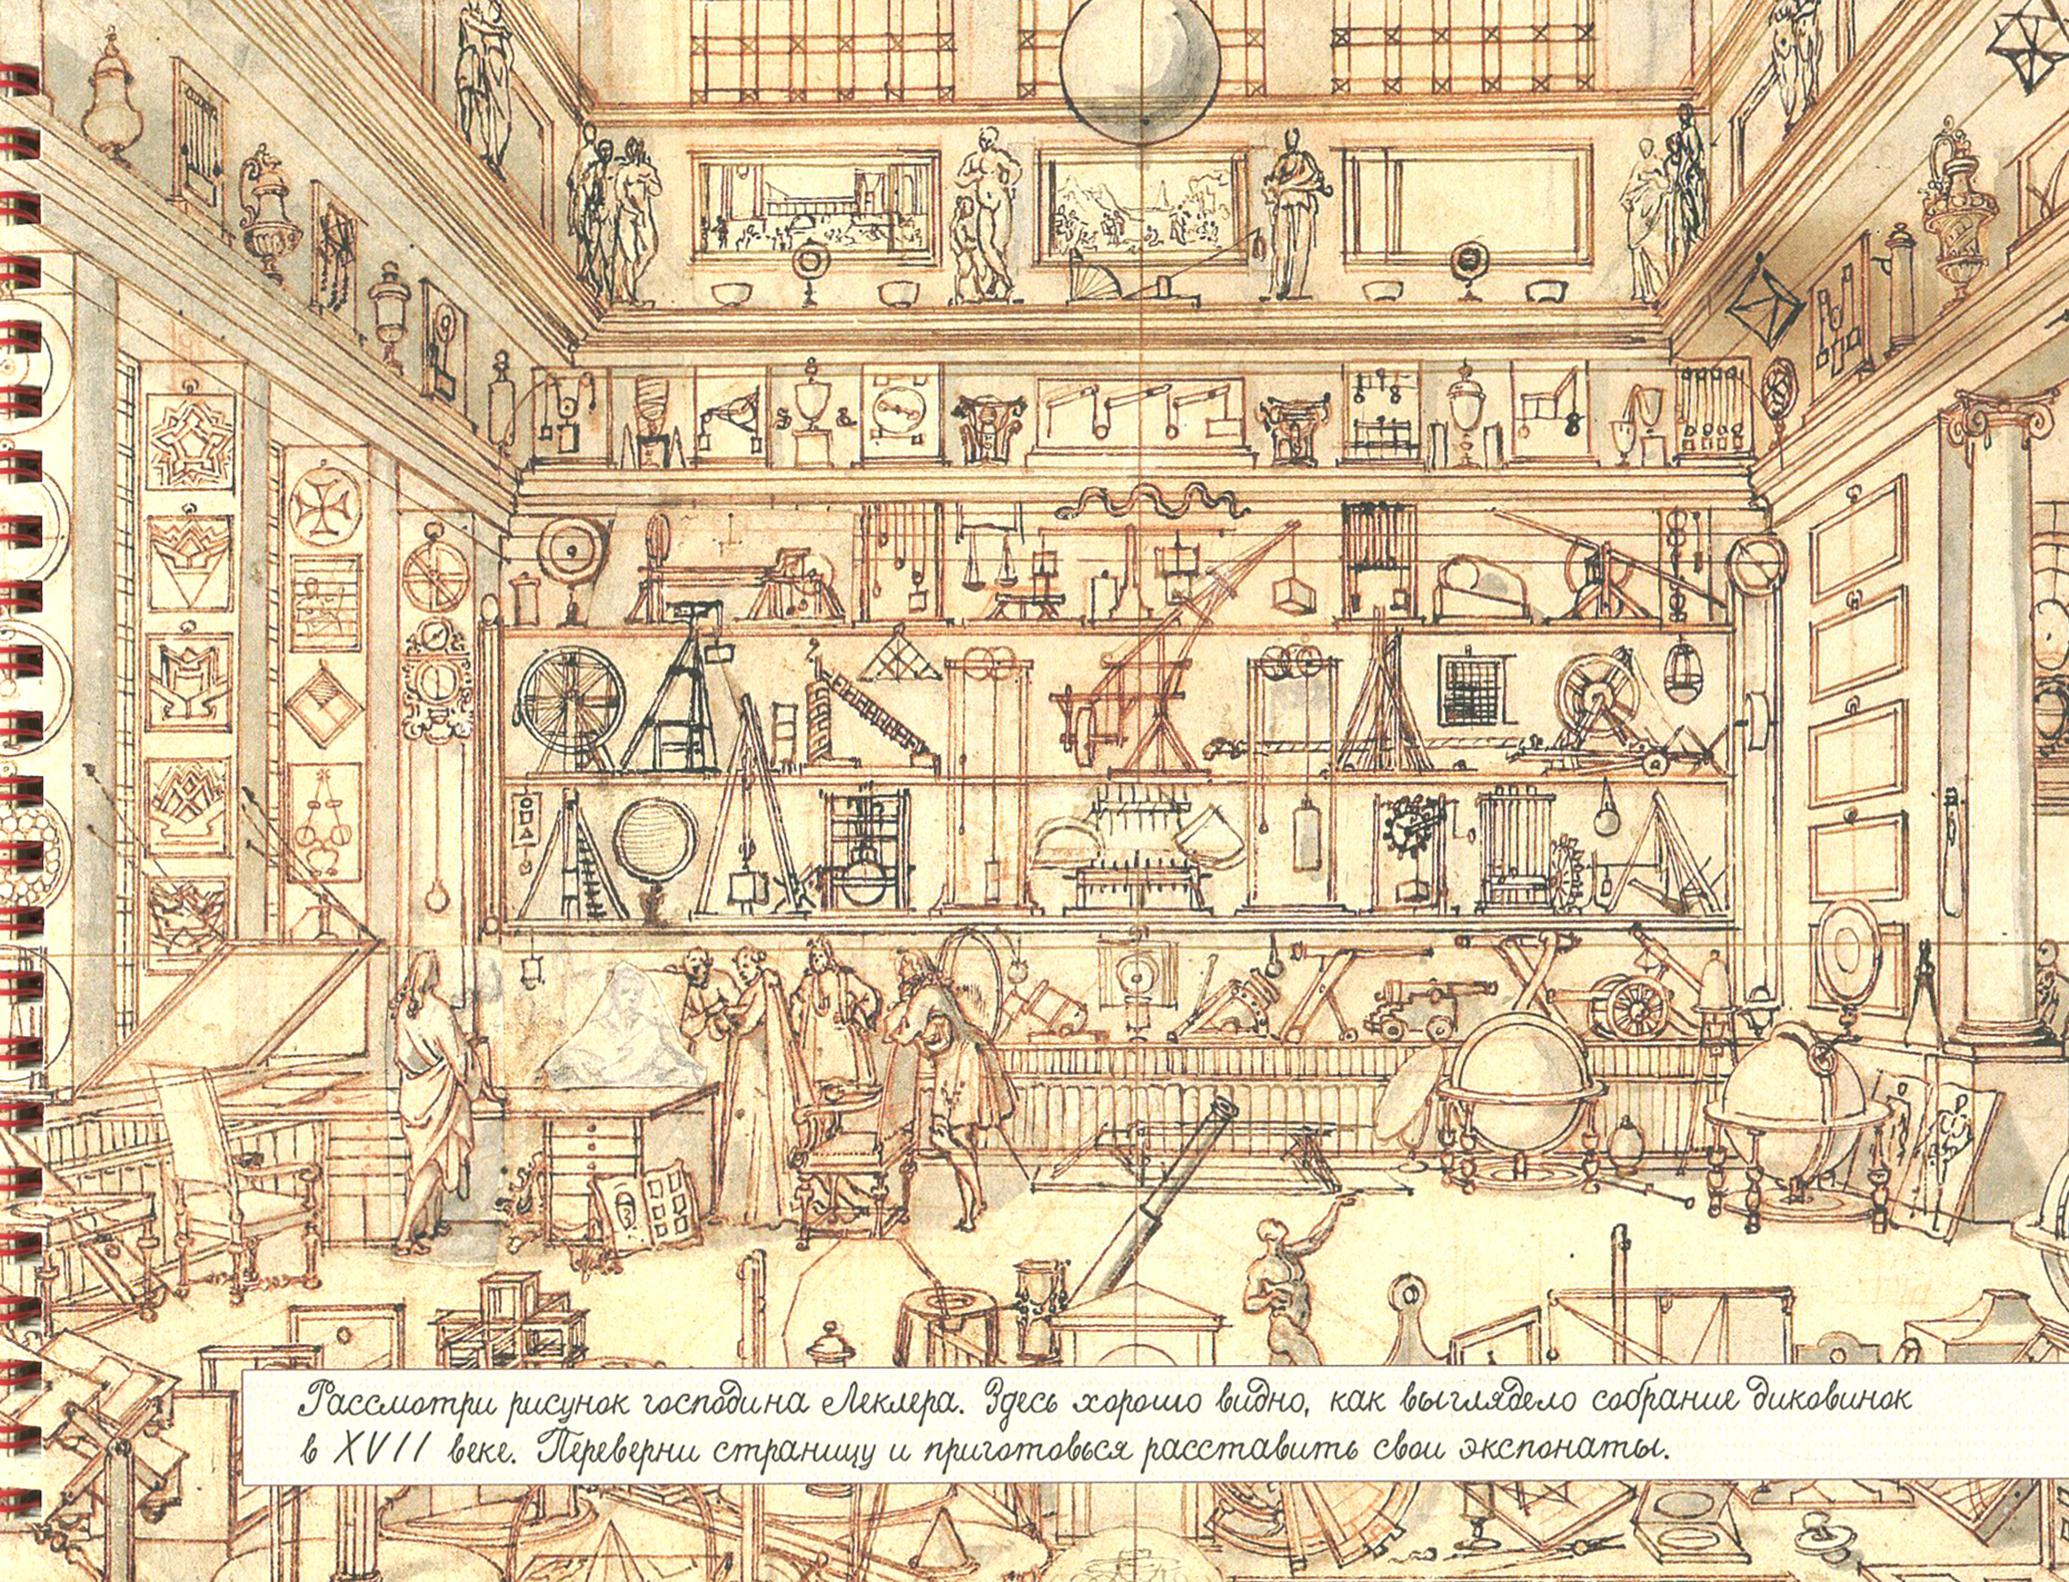 Рассмотри рисунок господина Леклера. Здесь хорошо видно, как выглядело собрание диковинок
в XVII веке. Переверни страницу и приготовься расставить свои экспонаты.